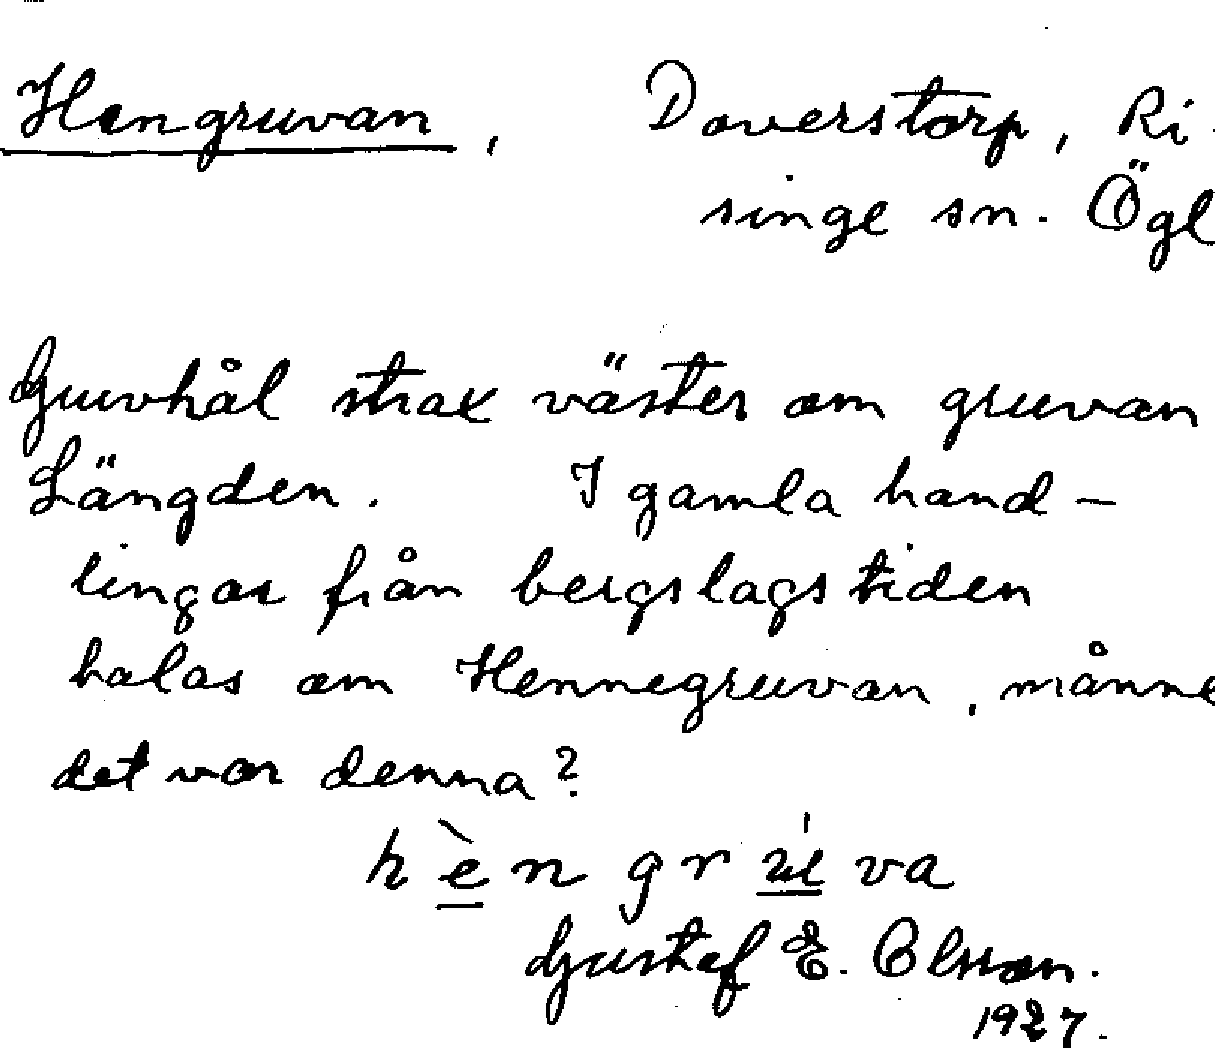 Hengruvan, Doverstorp, Ri-
singe sn. Ögl
Gruvhål strax väster om gruvan
Längden. I gamla hand-
lingar från bergslagstiden
halas om Hennegruvan, månne
det var denna?
h è n g r ú va
Gustaf E. Olsson.
1927.